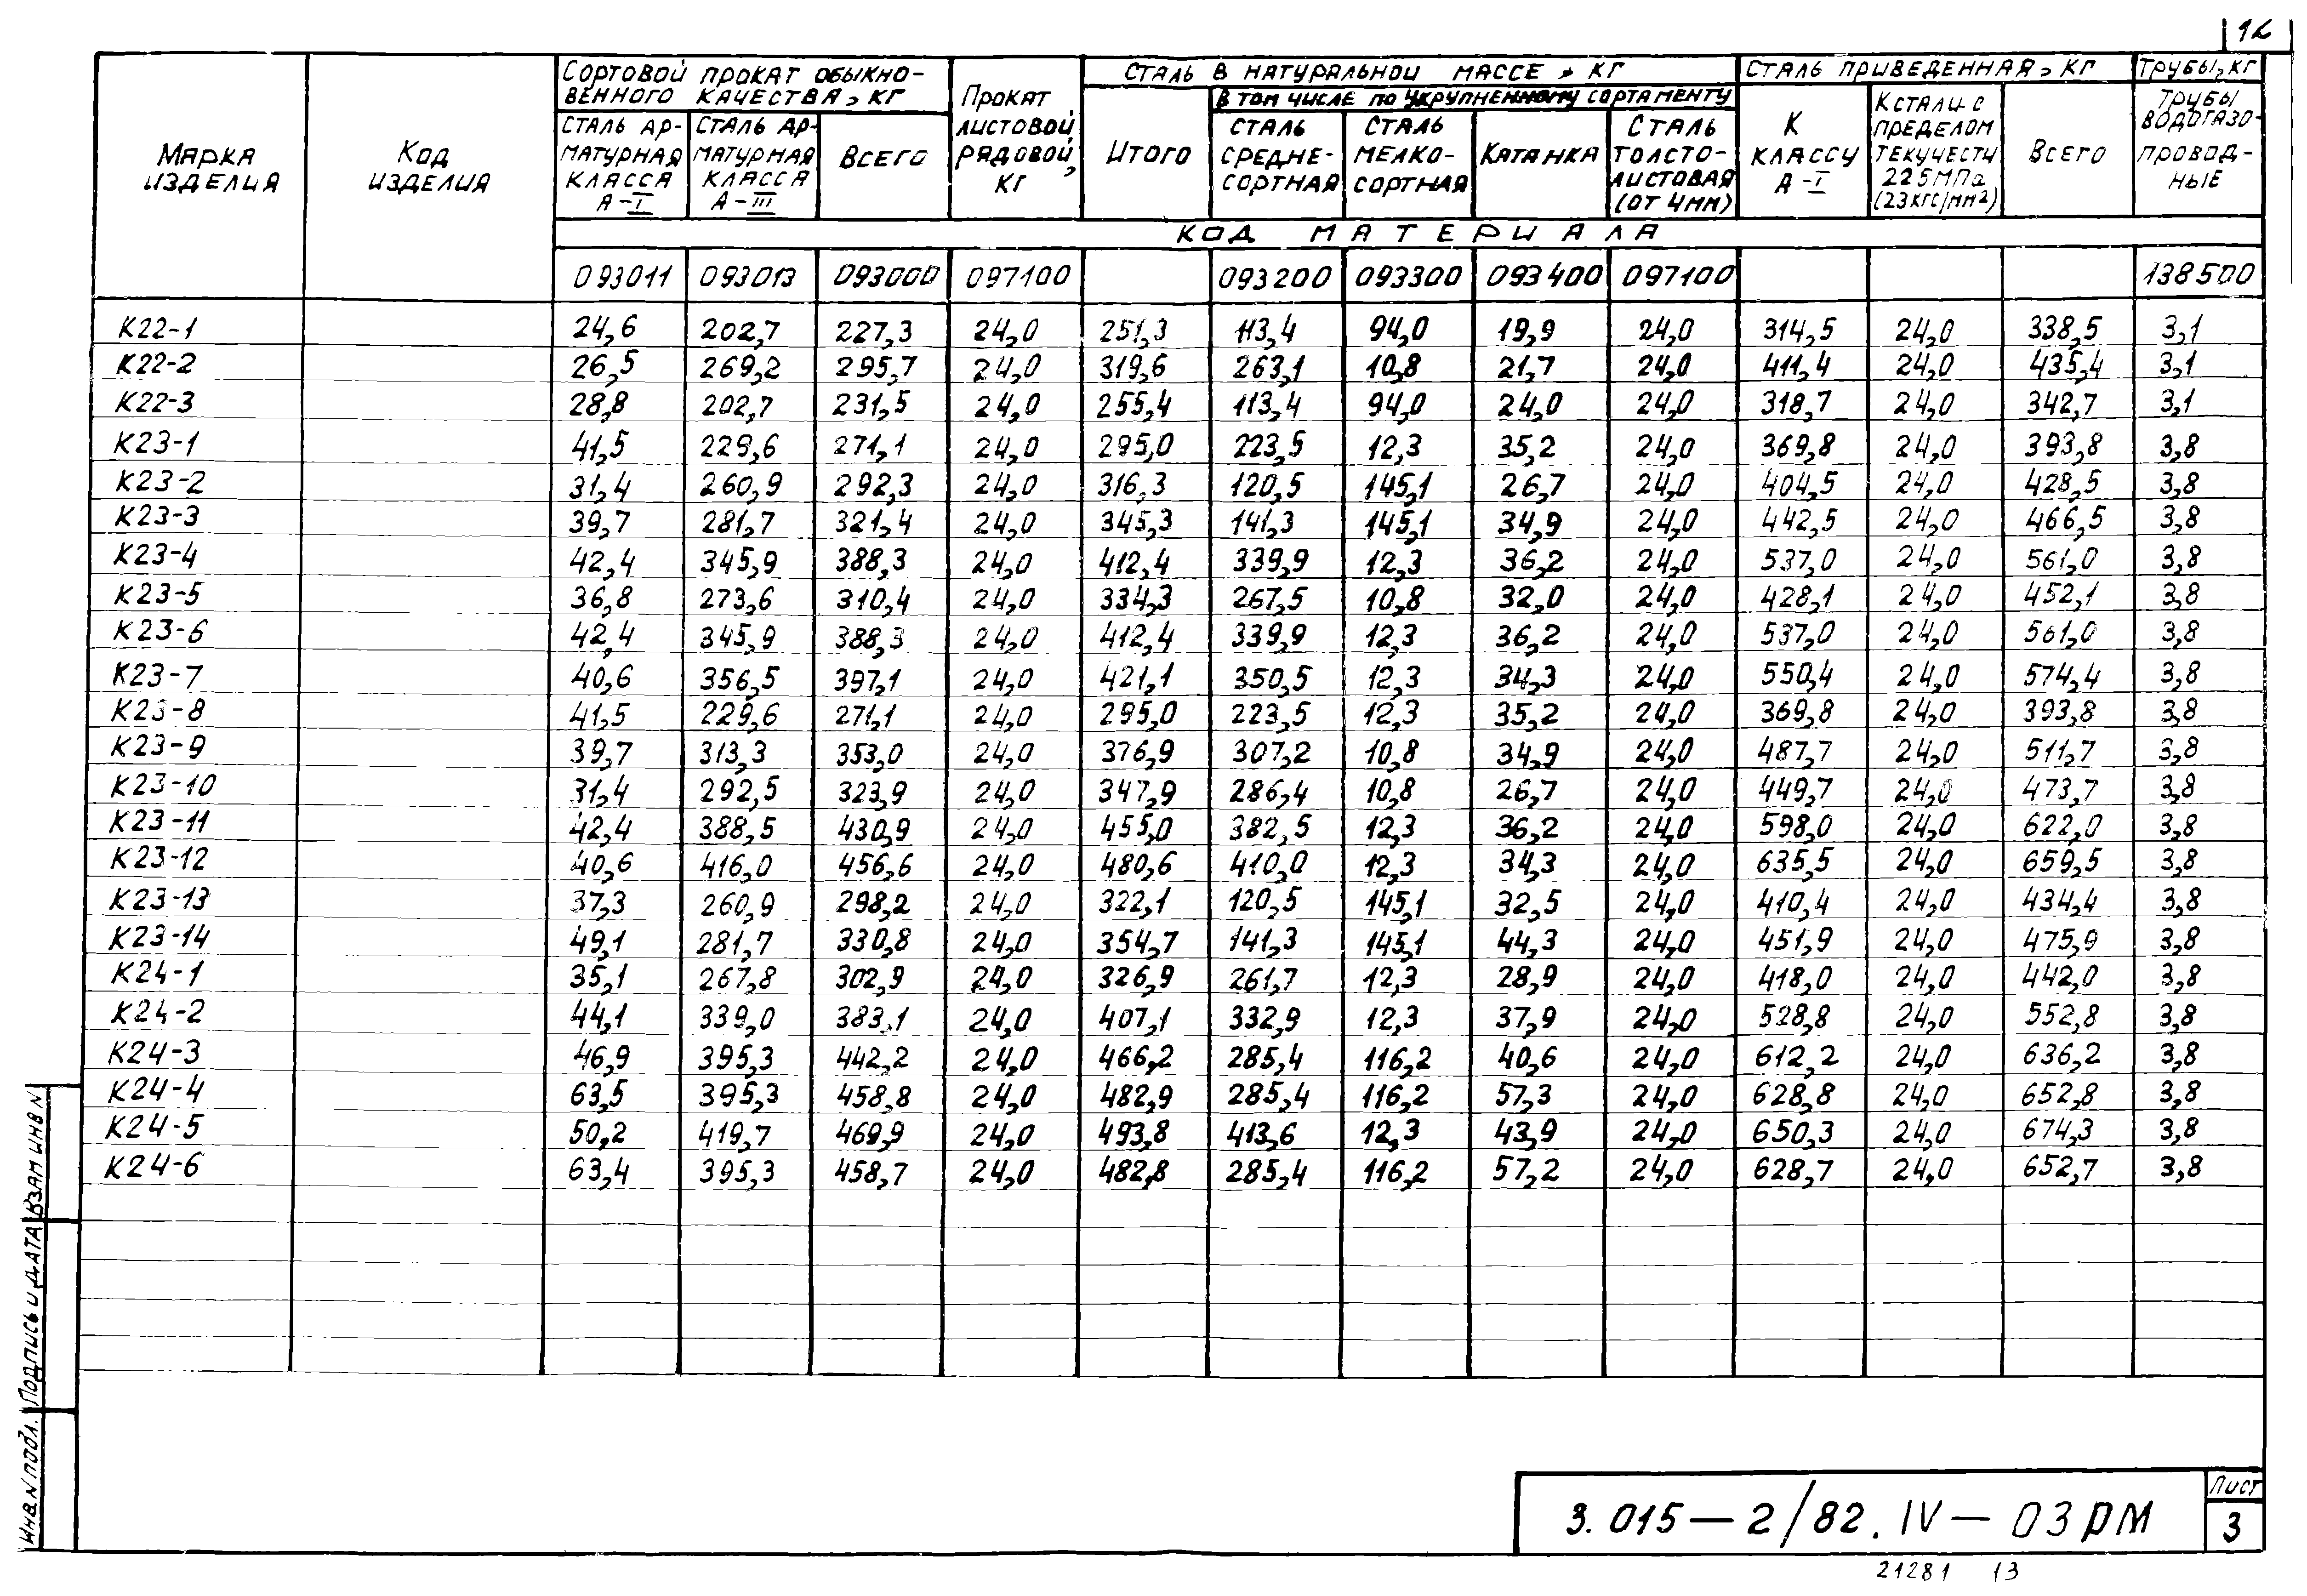 12
Марка изделия
Код изделия
Сортовой прокат обыкновенного качества, кг
Прокат листовой рядовой, кг
Сталь в натуральной массе, кг
Сталь приведенная, кг
Трубы, кг
в том числе по укрупненному сортаменту
Сталь арматурная класса А-I
Сталь арматурная класса А-III
Всего
Итого
Сталь среднесортная
Сталь мелкосортная
Катанка
Сталь толстолистовая (от 4мм)
К классу А-I
К стали с пределом текучести 225МПа (23кгс/мм2)
Всего
Трубы водогазопроводные
Код материала
093011 093013 093000 097100 093200 093300 093400 097100 138500
К22-1 24,6 202,7 227,3 24,0 251,3 113,4 94,0 19,9 24,0 314,5 24,0 338,5 3,1
К22-2 26,5 269,2 295,7 24,0 319,6 263,1 10,8 21,7 24,0 411,4 24,0 435,4 3,1
К22-3 28,8 202,7 231,5 24,0 255,4 113,4 94,0 24,0 24,0 318,7 24,0 342,7 3,1
К23-1 41,5 229,6 271,1 24,0 295,0 223,5 12,3 35,2 24,0 369,8 24,0 393,8 3,8
К23-2 31,4 260,9 292,3 24,0 316,3 120,5 145,1 26,7 24,0 404,5 24,0 428,5 3,8
К23-3 39,7 281,7 321,4 24,0 345,3 141,3 145,1 34,9 24,0 442,5 24,0 466,5 3,8
К23-4 42,4 345,9 388,3 24,0 412,4 339,9 12,3 36,2 24,0 537,0 24,0 561,0 3,8
К23-5 36,8 273,6 310,4 24,0 334,3 267,5 10,8 32,0 24,0 428,1 24,0 452,1 3,8
К23-6 42,4 345,9 388,3 24,0 412,4 339,9 12,3 36,2 24,0 537,0 24,0 561,0 3,8
К23-7 40,6 356,5 397,1 24,0 421,1 350,5 12,3 34,3 24,0 550,4 24,0 574,4 3,8
К23-8 41,5 229,6 271,1 24,0 295,0 223,5 12,3 35,2 24,0 369,8 24,0 393,8 3,8
К23-9 39,7 313,3 353,0 24,0 376,9 307,2 10,8 34,9 24,0 487,7 24,0 511,7 3,8
К23-10 31,4 292,5 323,9 24,0 347,9 286,4 10,8 26,7 24,0 449,7 24,0 473,7 3,8
К23-11 42,4 388,5 430,9 24,0 455,0 382,5 12,3 36,2 24,0 598,0 24,0 622,0 3,8
К23-12 40,6 416,0 456,6 24,0 480,6 410,0 12,3 34,3 24,0 635,5 24,0 659,5 3,8
К23-13 37,3 260,9 298,2 24,0 322,1 120,5 145,1 32,5 24,0 410,4 24,0 434,4 3,8
К23-14 49,1 281,7 330,8 24,0 354,7 141,3 145,1 44,3 24,0 451,9 24,0 475,9 3,8
К24-1 35,1 267,8 302,9 24,0 326,9 261,7 12,3 28,9 24,0 418,0 24,0 442,0 3,8
К24-2 44,1 339,0 383,1 24,0 407,1 332,9 12,3 37,9 24,0 528,8 24,0 552,8 3,8
К24-3 46,9 395,3 442,2 24,0 466,2 285,4 116,2 40,6 24,0 612,2 24,0 636,2 3,8
К24-4 63,5 395,3 458,8 24,0 482,9 285,4 116,2 57,3 24,0 628,8 24,0 652,8 3,8
К24-5 50,2 419,7 469,9 24,0 493,8 413,6 12,3 43,9 24,0 650,3 24,0 674,3 3,8
К24-6 63,4 395,3 458,7 24,0 482,8 285,4 116,2 57,2 24,0 628,7 24,0 652,7 3,8
Инв.N подл. Подпись и дата Взам инв N
3.015-2/82.IV-03РМ
Лист
3
21281 13